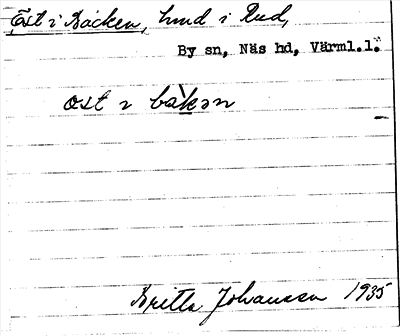 Öst i Backen, hmd i Rud,
By sn, Näs hd, Värml.l.
öst ɪ bàkən
Britta Johansson 1935